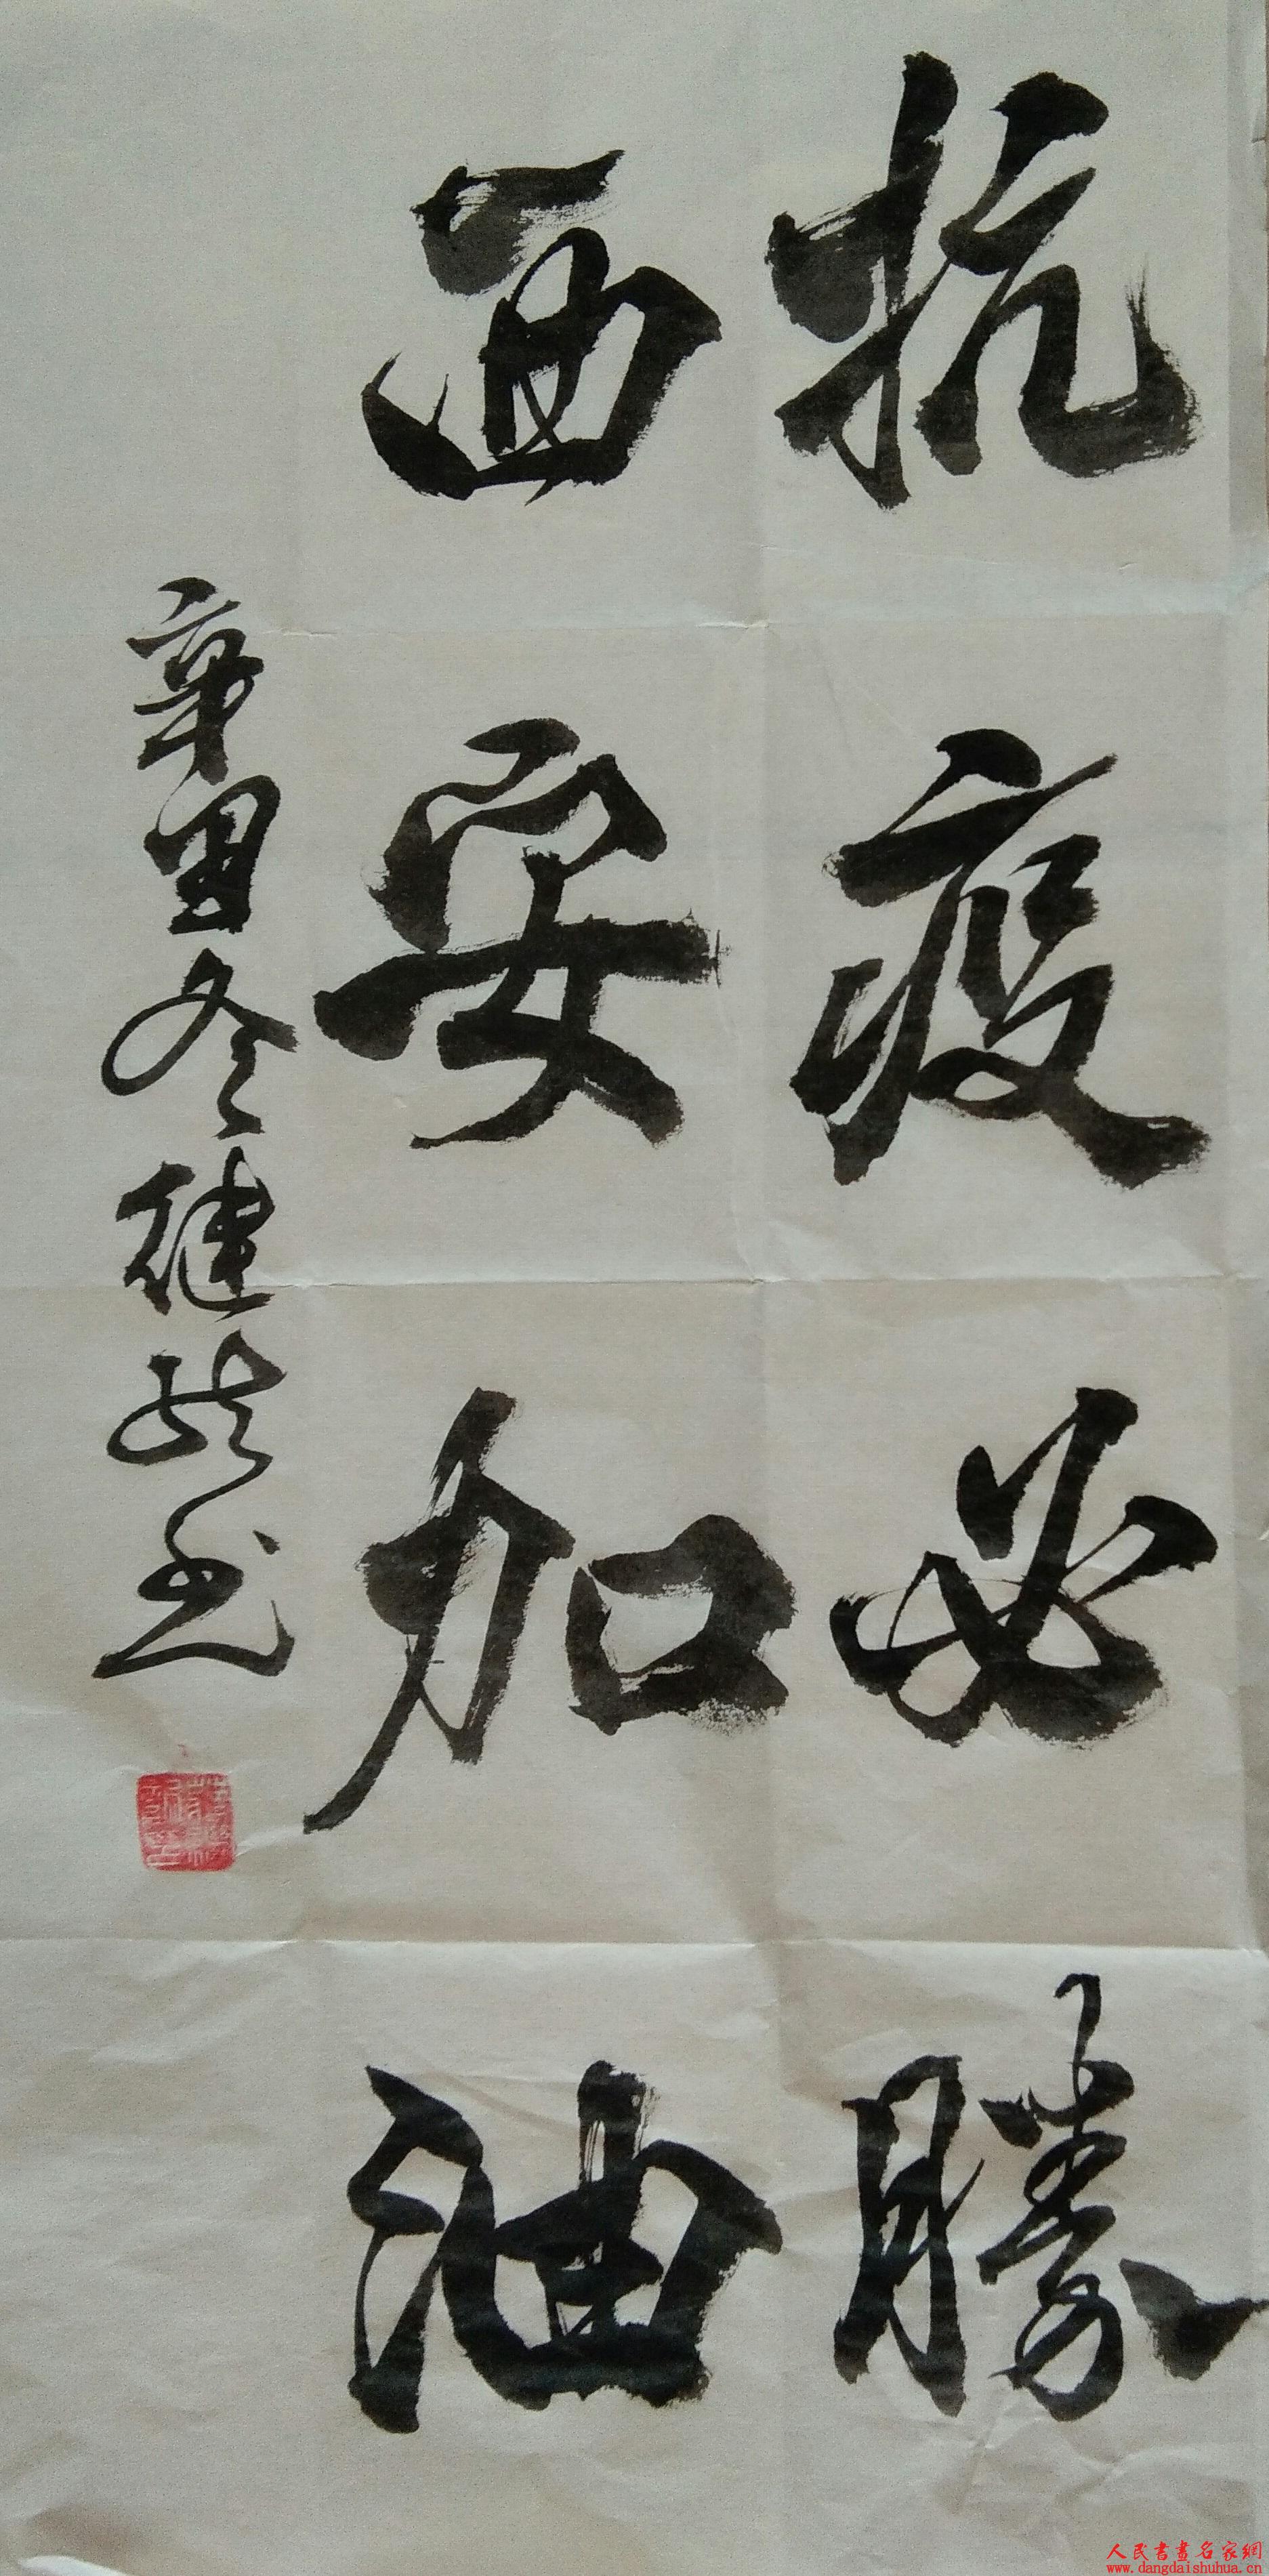 抗疫必勝
西安加油
辛丑冬健
书
人民書畫名家網
www.dangdaishuhua.cn